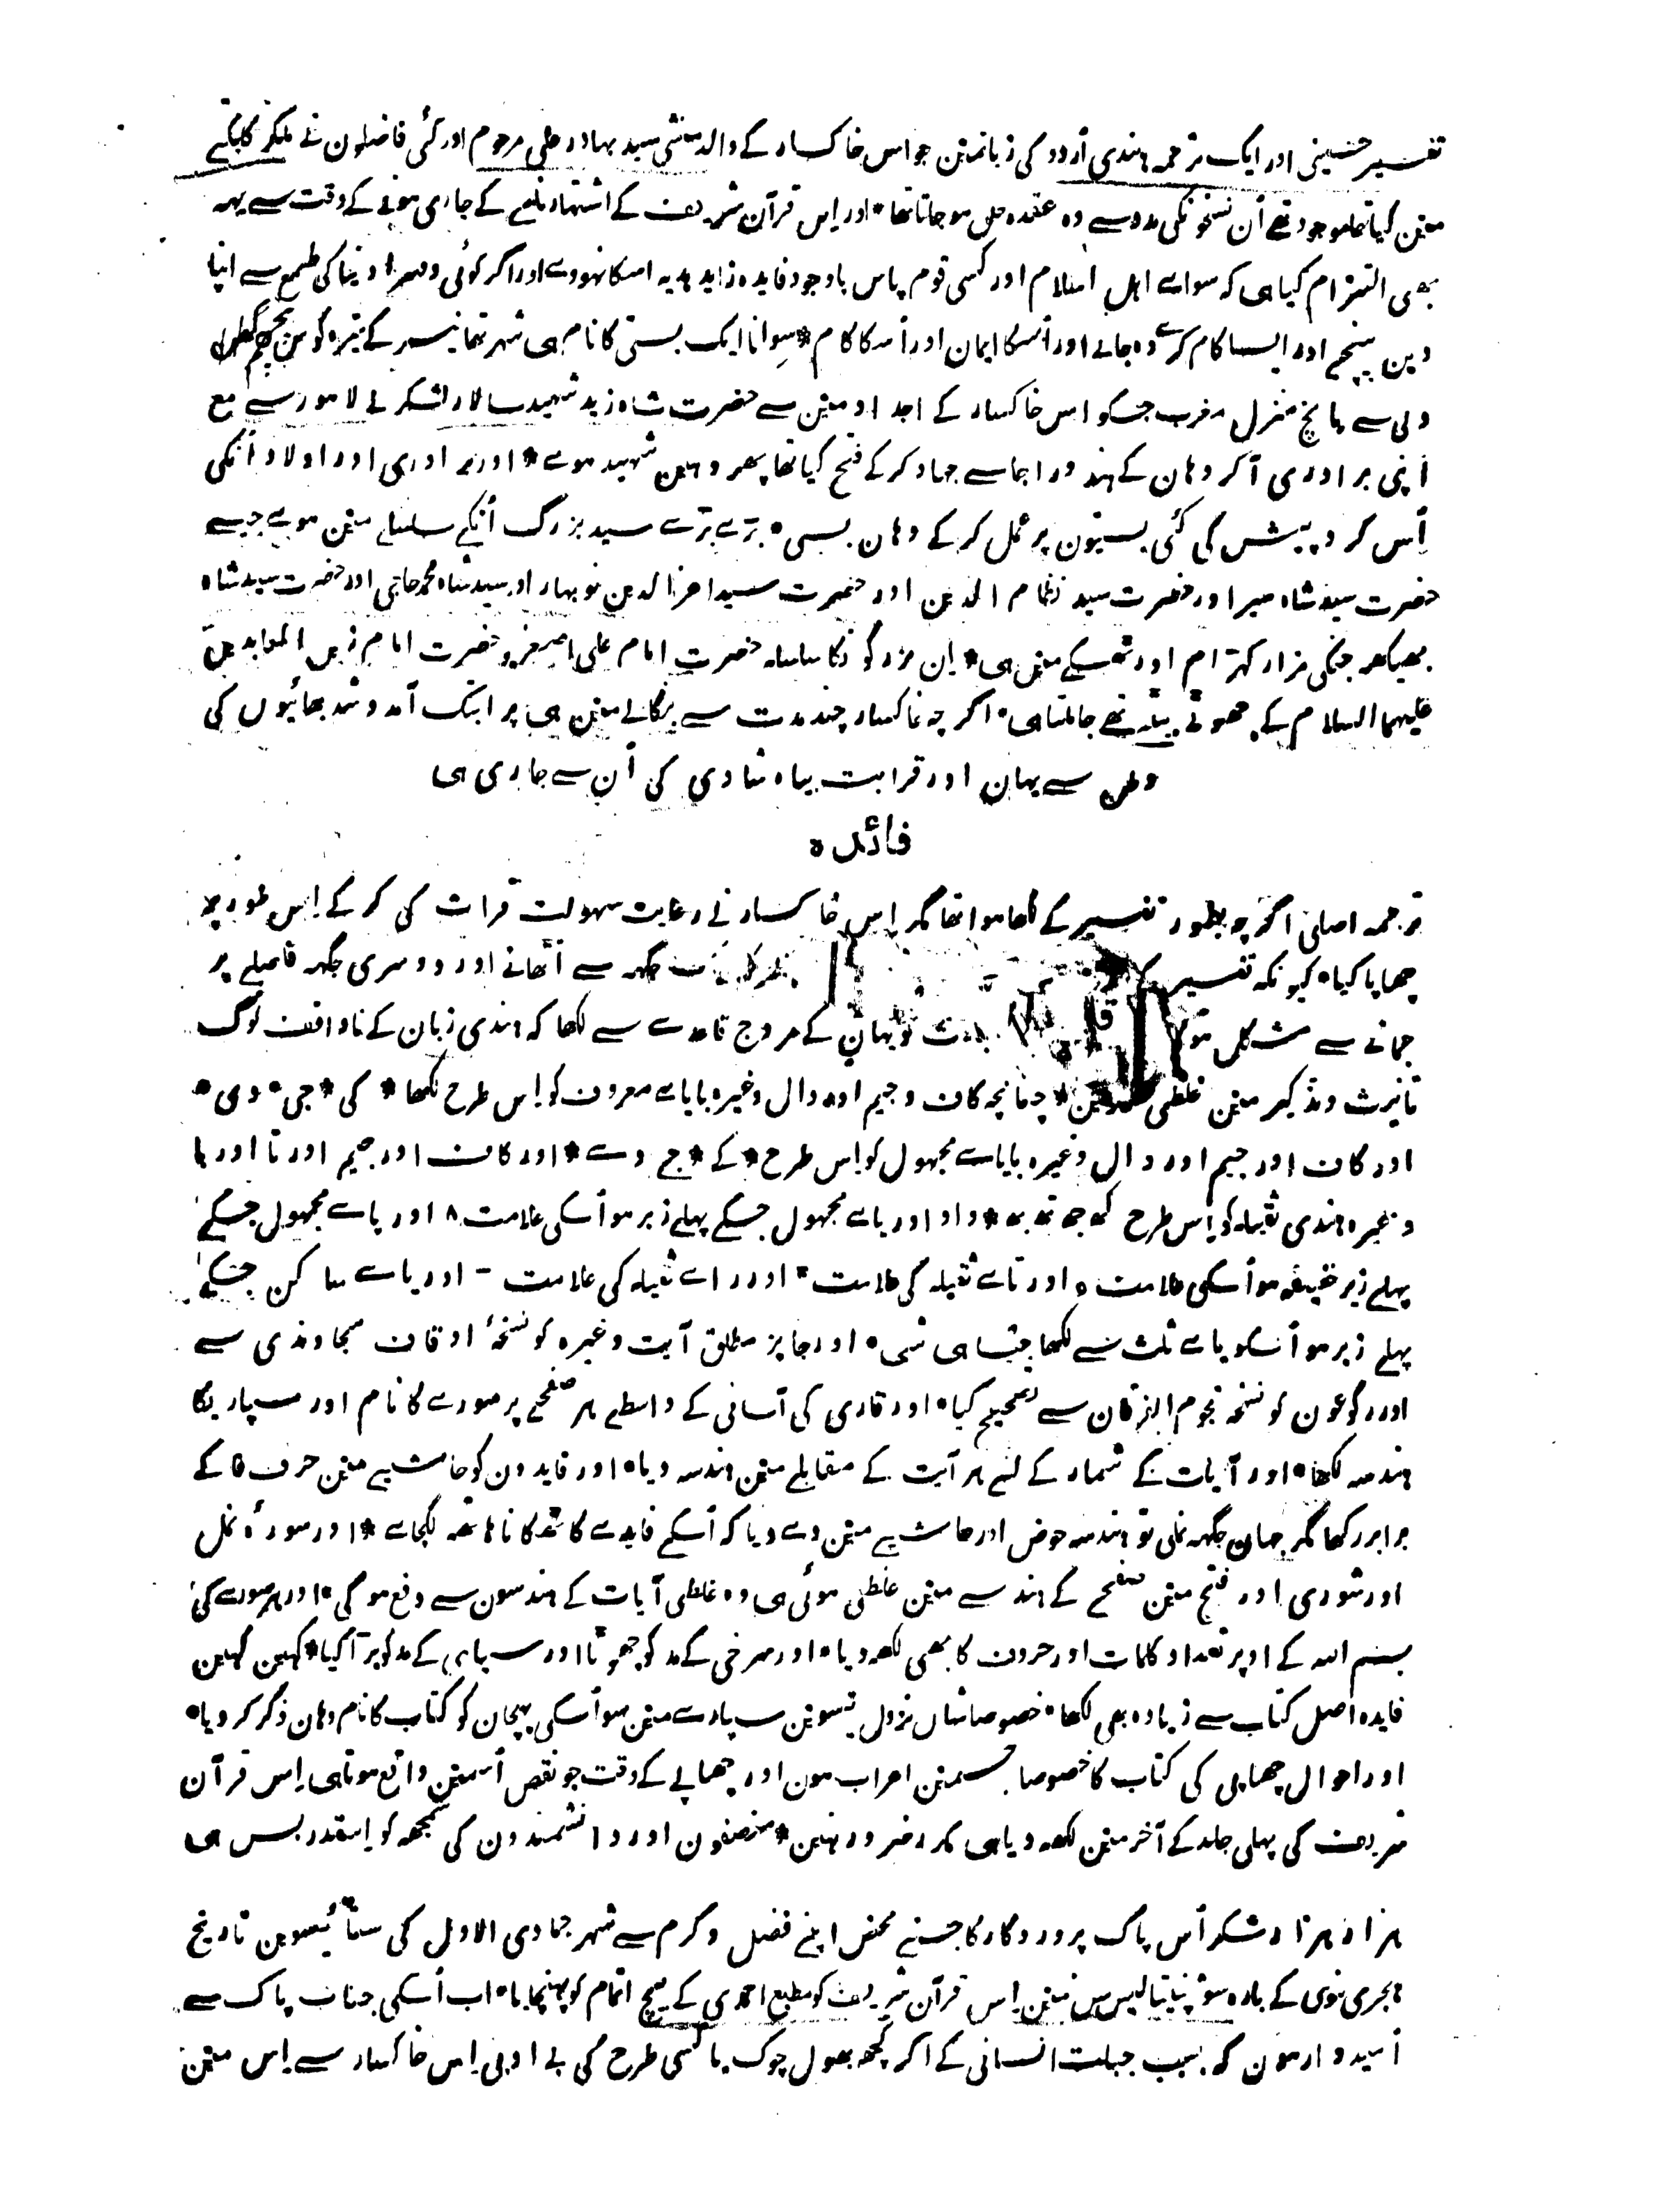 تفسیر حسینی اور ایک ترجمہ ہندی اُردو کی زبانمین جو اس خاکسار کے والد منشی سید بہادر علی مرحوم اور کئی فاضلون نے ملکر کلکتے
مین کیا تھا موجود تھے اُن نسخونکی مدد سے وہ عقدہ حل ہو جاتا تھا * اور اِس قرآن شریف کے اشتہار نامے کے جاری ہونے کے وقت سے یہہ
بھی التزام کیا ہی کہ سواے اہلِ اسلام اور کسی قوم پاس باوجود فایدہ زاید ہدیہ اسکا نہووے اور اگر کوئی دوسرا دنیا کی طمع سے اپنا
دین بیچے اور ایسا کام کرے وہ جانے اور اُسکا ایمان اور اُسکا کام * سِوانا ایک بستی کا نام ہی شہر تھانیسر کے تیرہ کوس
دلی سے پانچ منزل مغرب جسکو اس خاکسار کے اجداد مین سے حضرت شاہ زید شہید سالار لشکر نے لاہور سے مع
اپنی برادری آکر وہان کے ہندو راجا سے جہاد کر کے فتح کیا تھا پھر وہین شہید ہوے * اور برادری اور اولاد اُنکی
اُس گرد پیش کی کئی بستیون پر عمل کر کے وہان بسی * بڑے بڑے سید بزرگ اُنکے سلسلے مین ہوے جیسے
حضرت سید شاہ میر اور حضرت سید نظام الدین اور حضرت سید اعز الدین نوبہار اور سید شاہ محمد حاجی اور حضرت سید شاہ
بھیکھ جنکی مزار کہڑام اور ٹھسکے مین ہی * اِن بزرگونکا سلسلہ حضرت امام علی اصغر حضرت امام زین العابدین
علیہما السلام کے چھوٹے بیٹے تھے جا ملتا ہی * اگرچہ خاکسار چند مدت سے بنگالے مین ہی پر ابتک آمد و شد بھائیوں کی
وطن سے یہان اور قرابت بیاہ شادی کی اُن سے جاری ہی
فائدہ
ترجمہ اصلی اگرچہ بطور تفسیر کے لکھا ہوا تھا مگر اِس خاکسار نے رعایت سہولت قرات کی کر کے اِس طور پر
چھاپا کیا * کیونکہ تفسیر جگہہ سے اُٹھانے اور دوسری جگہہ فاصلے پر
جمانے سے مشکل ہوتا تو یہان کے مروج قاعدے سے لکھا کہ ہندی زبان کے ناواقف لوگ
تانیث و تذکیر مین غلطی * چنانچہ کاف و جیم اور دال وغیرہ بایاے معروف کو اِس طرح لکھا * کی * جی * دی *
اور کاف اور جیم اور دال وغیرہ بایاے مجہول کو اِس طرح * کے * جے دے * اور کاف اور جیم اور تا اور با
وغیرہ ہندی ثقیلہ کو اِس طرح کھ جھ تھ بھ * واو اور یاے مجہول جسکے پہلے زبر ہو اُسکی علامت ۸ اور یاے مجہول جسکے
پہلے زیر خفیفہ ہو اُسکی علامت ہ اور تاے ثقیلہ کی علامت * اور راے ثقیلہ کی علامت - اور یاے ساکن جسکے
پہلے زبر ہو اُسکو یاے ثلث سے لکھا جیسا ہی شی * اور جایز مطلق آیت وغیرہ کو نسخۂ اوقاف سجاوندی سے
اور رکوعون کو نسخۂ نجوم الفرقان سے تصحیح کیا * اور قاری کی آسانی کے واسطے ہر صفحے پر سورے کا نام اور سپاریکا
ہندسہ لکھا * اور آیات کے شمار کے لئے ہر آیت کے مقابلے مین ہندسہ دیا * اور فایدون کو حاشیے مین حرف ف کے
برابر رکھا مگر جہان جگہہ نملی تو ہندسہ حوض اور حاشیے مین دے دیا کہ اُسکے فایدے کا ٹھکانا ہاتھہ لگجاے * اور سورۂ نمل
اور شوری اور فتح مین صفحے کے ہندسے مین غلطی ہوئی ہی وہ غلطی آیات کے ہندسون سے دفع ہوگی * اور ہر سورے کی
بسم اللہ کے اوپر تعداد کلمات اور حرون کا بھی لکھہ دیا * اور سرخی کے مد کو چھوٹا اور سیاہی کے مد کو بڑا کیا * کہین کہین
فایدہ اصل کتاب سے زیادہ بھی لکھا * خصوصا شان نزول تیسوین سپارے مین سو اُسکی پہچان کو کتاب کا نام وہان ذکر کر دیا *
اور احوال چھاپی کی کتاب کا خصوصا جسمین اعراب ہون اور چھاپے کے وقت جو نقص اُسمین واقع ہوتا ہی اِس قرآن
شریف کی پہلی جلد کے آخر مین لکھہ دیا ہی مکرر ضرور نہین * منصفون اور دانشمندون کی سمجھہ کو اِسقدر بس ہی
ہزار ہزار شکر اُس پاک پروردگار کا جسنے محض اپنے فضل و کرم سے شہر جمادی الاول کی ستائیسوین تاریخ
ہجری نبوی کے بارہ سو پینتالیس سن مین اِس قرآن شریف کو مطبع احمدی کے بیچ اتمام کو پہنچایا * اب اُسکی جناب پاک سے
اُمیدوار ہون کہ بسبب جبلت انسانی کے اگر کچھہ بھول چوک یا کسی طرح کی بے ادبی اِس خاکسار سے اِس مین